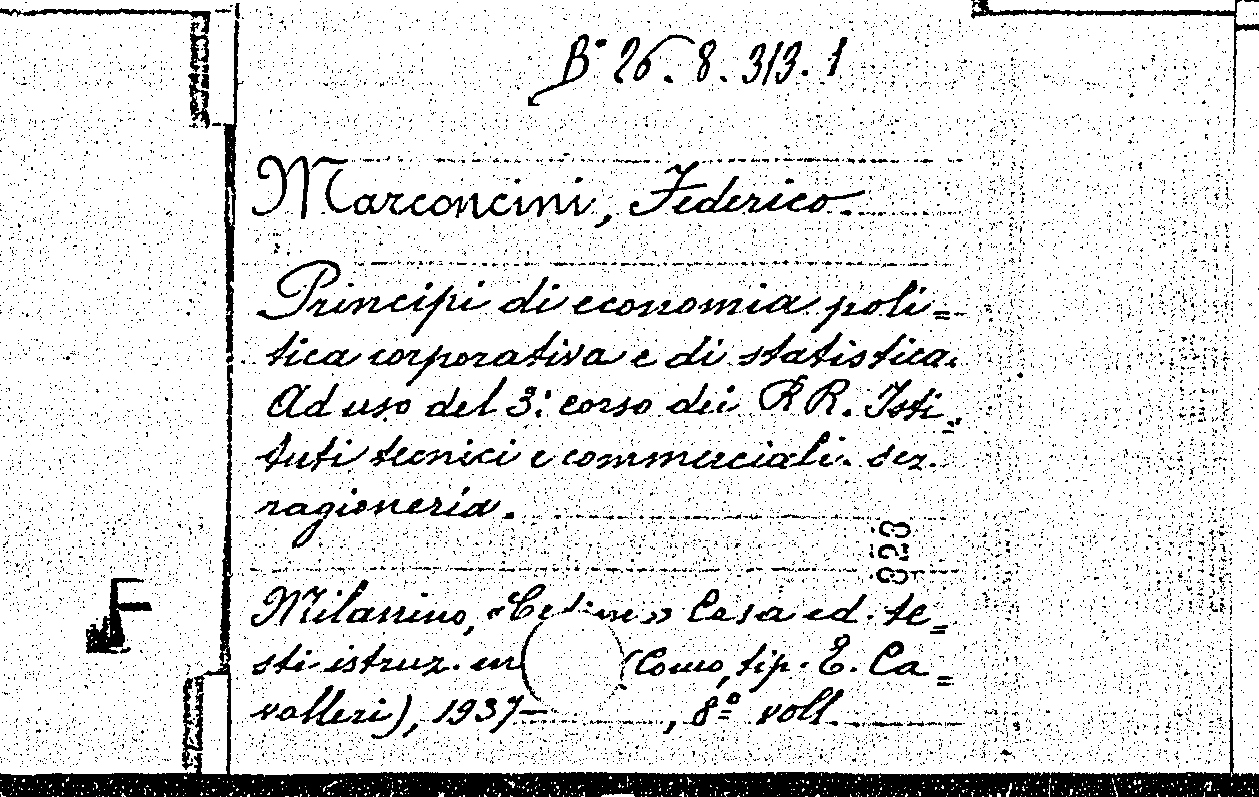 B. 26. 8. 313. 1
Marconcini, Federico.
Principi di economia poli=
tica corporativa e di statistica.
Ad uso del 3.° corso dei RR. Isti=
tuti tecnici e commerciali. sez.
ragioneria.
923
Milanino, Casa ed. te=
sti istruz. (Como, tip. E. Ca=
valleri), 1937- , 8° voll.
F